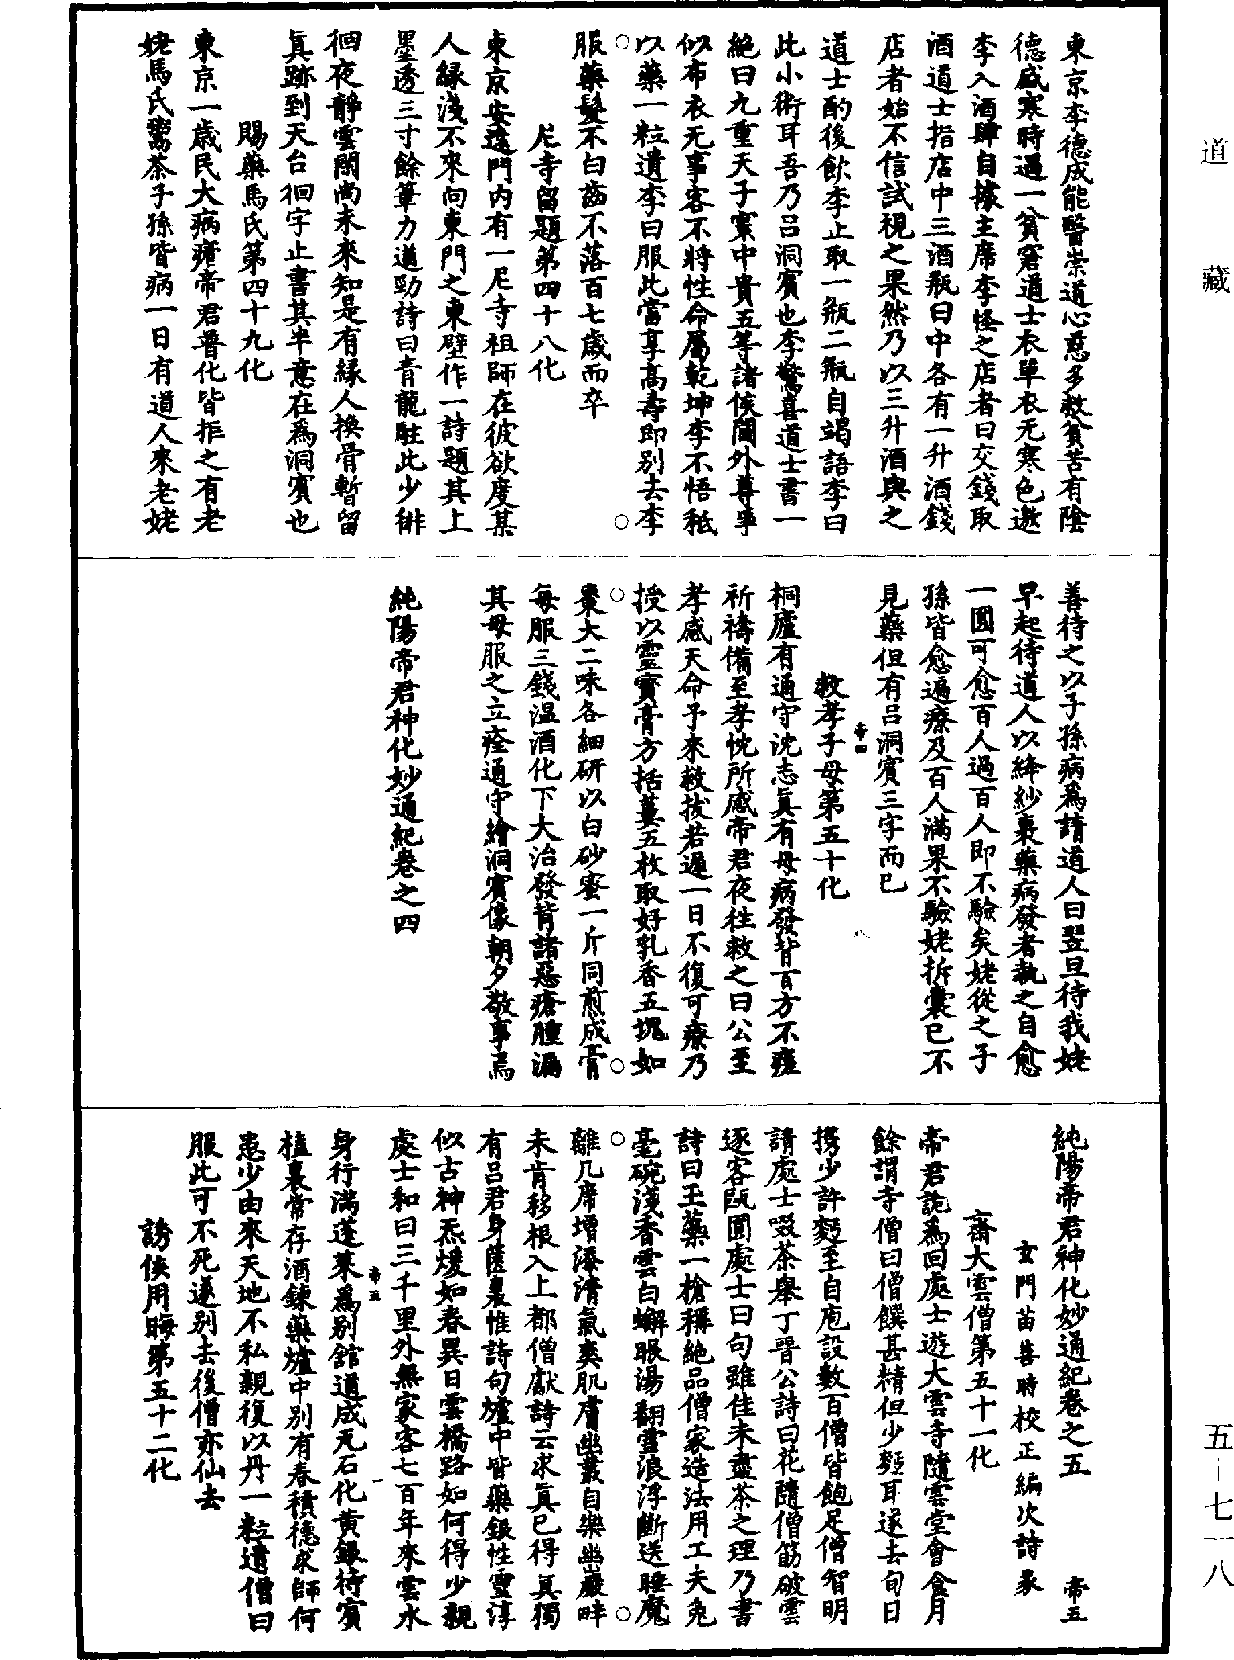 東京李德成能醫崇道心慈多救貧苦有陰
德盛寒時過一貧窘道士衣單衣无寒色邀
李入酒肆自據主席李怪之店者曰交錢取
酒道士指店中三酒瓶曰中各有一升酒錢
店者始不信試視之果然乃以三升酒與之
道士酌後飲李止取一瓶二瓶自竭語李曰
此小術耳吾乃呂洞賓也李驚喜道士書一
絕曰九重天子寰中貴五等諸侯閫外尊爭
似布衣无事客不將性命屬乾坤李不悟秪
以藥一粒遺李曰服此當享高壽即别去李
服藥髮不白齒不落百七歲而卒
尼寺留題第四十八化
東京安遠門内有一尼寺祖師在彼欲度某
人緣淺不來向東門之東壁作一詩題其上
墨透三寸餘筆力遒勁詩曰青龍駐此少徘
徊夜靜雲閑尚未來知是有緣人換骨暫留
真跡到天台徊字止書其半意在爲洞賓也
賜藥馬氏第四十九化
東京一歲民大病瘧帝君普化皆拒之有老
姥馬氏鬻茶子孫皆病一日有道人來老姥
善待之以子孫病爲請道人曰翌旦待我姥
早起待道人以絳紗裹藥病發者執之自愈
一圓可愈百人過百人即不驗矣姥從之子
孫皆愈遍療及百人滿果不驗姥拆囊已不
見藥但有呂洞賓三字而已
帝四
救孝子母第五十化
桐廬有通守沈志真有母病發背百方不瘥
祈禱備至孝忱所感帝君夜往救之曰公至
孝感天命予來救拔若遲一日不復可療乃
授以靈寶膏方括蔞五枚取好乳香五塊如
棗大二味各細研以白砂蜜一斤同煎成膏
每服三錢温酒化下大治發背諸惡瘡腫漏
其母服之立痊通守繪洞賓像朝夕敬事焉
純陽帝君神化妙通紀卷之四
純陽帝君神化妙通紀卷之五　帝五
玄門苗善時校正編次詩彖
齋大雲僧第五十一化
帝君詭爲回處士遊大雲寺隨雲堂會食月
餘謂寺僧曰僧饌甚精但少麫耳遂去旬日
携少許麫至自庖設數百僧皆飽足僧智明
請處士啜茶舉丁晋公詩曰花隨僧筯破雲
逐客甌圓處士曰句雖佳未盡茶之理乃書
詩曰玉藥一槍稱絶品僧家造法用工夫兔
毫碗淺香雲白蠏眼湯翻雪浪浮斷送睡魔
離几席增添清氣爽肌膚幽叢自樂幽巖畔
未肯移根入上都僧獻詩云求真已得真獨
有呂君身匳裏惟詩句爐中皆藥銀性靈淳
似古神炁煖如春異日雲橋路如何得少親
處士和曰三千里外無家客七百年來雲水
帝五　一
身行滿蓬萊爲别舘道成瓦石化黄銀待賓
榼裏常存酒鍊藥爐中别有春積德求師何
患少由來天地不私親復以丹一粒遺僧曰
服此可不死遂别去後僧亦仙去
誘侯用晦第五十二化
道藏
五—七一八